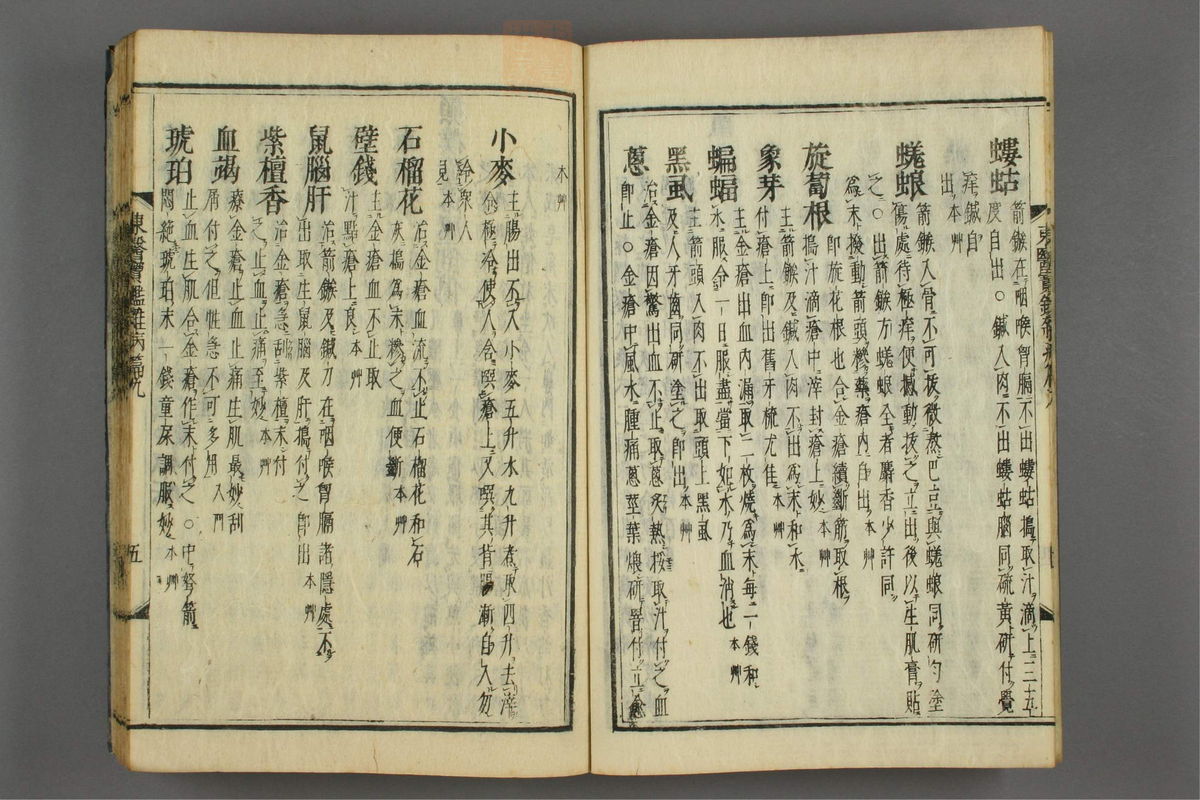 螻蛄
箭鏃在咽喉胷膈不出螻蛄搗取汁滴上三五
度自出○鍼入肉不出螻蛄腦同硫黃研付覺
痒鍼自
出本艸
蜣蜋
箭鏃入骨不可拔微熬巴豆與蜣蜋同研勻塗
傷處待極痒便撼動拔之立出後以生肌膏貼
之○出箭鏃方蜣蜋全者麝香少許同
爲末撥動箭頭糝藥瘡內自出本艸
旋葍根
卽旋花根也合金瘡續斷筋取根
搗汁滴瘡中滓封瘡上妙本艸
象牙
主箭鏃及鍼入肉不出爲末和水
付瘡上卽出舊牙梳尤佳本艸
蝙蝠
主金瘡出血內漏取二枚燒爲末每一錢和
水服令一日服盡當下如水乃血消也本艸
黑虱
主箭頭入肉不出取頭上黑虱
及人牙齒同研塗之卽出本艸
蔥
治金瘡因驚出血不止取蔥炙熱挼取汁付之血
卽止○金瘡中風水腫痛蔥莖葉煨研罯付立愈
本艸
小麥
主腸出不入小麥五升水九升煮取四升去滓
令極冷使人含噀瘡上又噀其背腸漸自入勿
令衆人
見本艸
石榴花
治金瘡血流不止石榴花和石
灰搗爲末糝之血便斷本艸
壁錢
主金瘡血不止取
汁點瘡上良本艸
鼠腦肝
治箭鏃及鍼刀在咽喉胷膈諸隱處不
出取生鼠腦及肝搗付之卽出本艸
紫檀香
治金瘡急刮紫檀末付
之止血止痛至妙本艸
血竭
療金瘡止血止痛生肌最妙刮
屑付之但性急不可多用入門
琥珀
止血生肌合金瘡作末付之○中弩箭
悶絶琥珀末一錢童尿調服妙本艸
東醫寶鑑雜病篇九
五